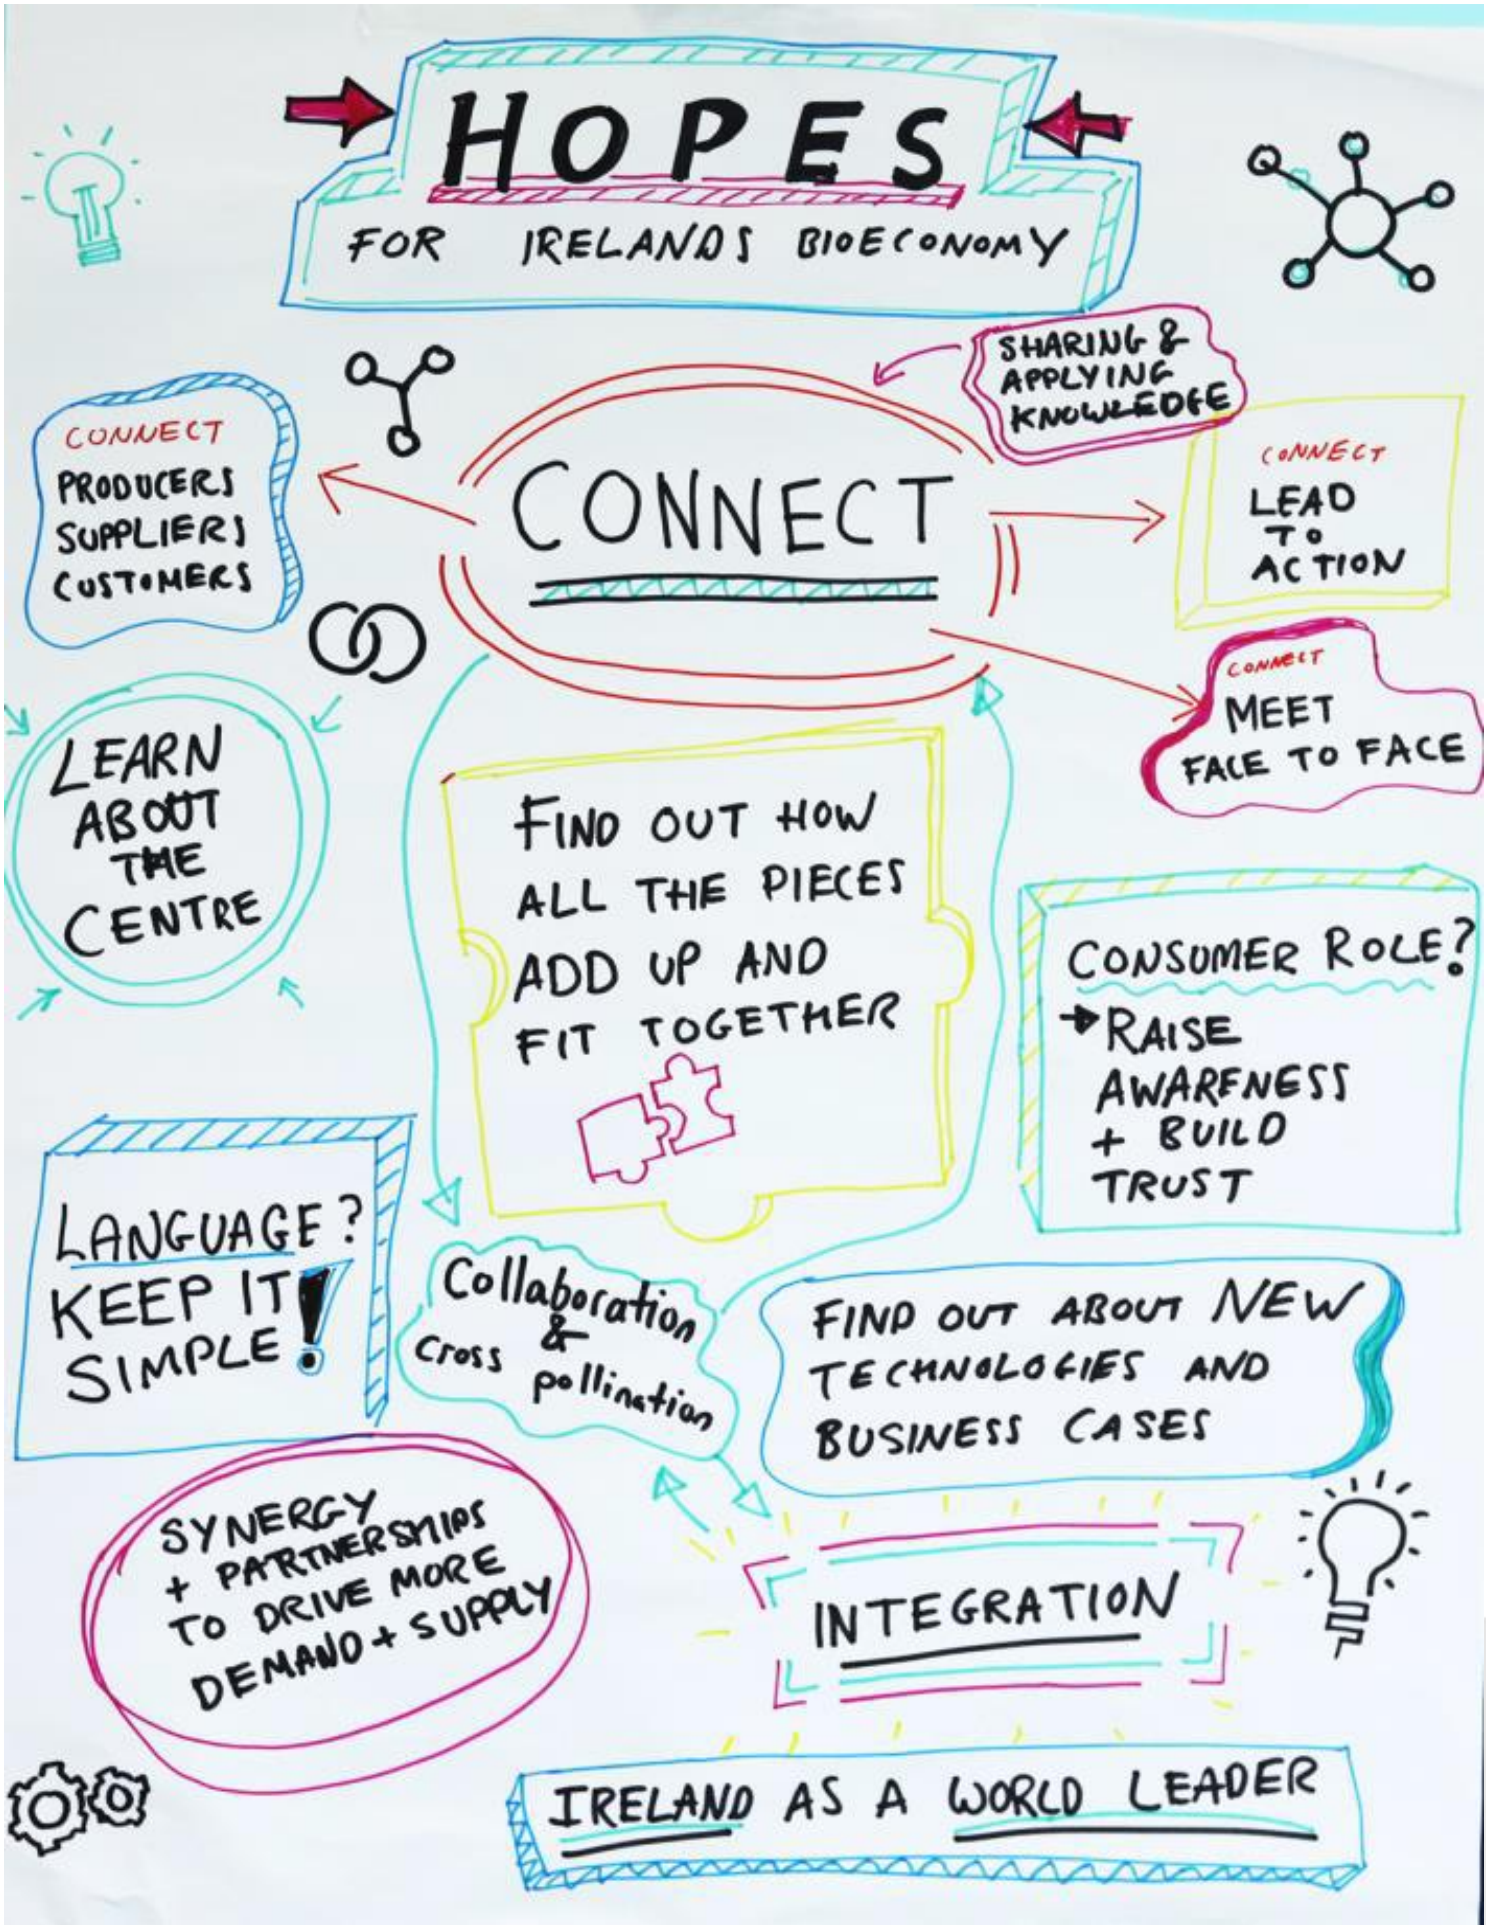 HOPES
FOR IRELANDS BIOECONOMY
SHARING &
APPLYING
KNOWLEDGE
CONNECT
PRODUCERS
SUPPLIERS
CUSTOMERS
CONNECT
CONNECT
LEAD
TO
ACTION
CONNECT
MEET
FACE TO FACE
LEARN
ABOUT
THE
CENTRE
FIND OUT HOW
ALL THE PIECES
ADD UP AND
FIT TOGETHER
CONSUMER ROLE?
RAISE
AWARENESS
+ BUILD
TRUST
LANGUAGE?
KEEP IT
SIMPLE!
Collaboration
&
Cross pollination
FIND OUT ABOUT NEW
TECHNOLOGIES AND
BUSINESS CASES
SYNERGY
+ PARTNERSHIPS
TO DRIVE MORE
DEMAND + SUPPLY
INTEGRATION
IRELAND AS A WORLD LEADER